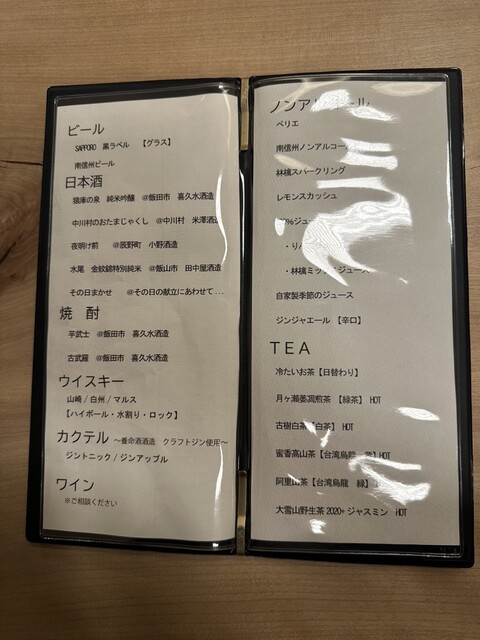 ビール
SAPPORO 黒ラベル 【グラス】
南信州ビール
日本酒
猿庫の泉 純米吟醸 @飯田市 喜久水酒造
中川村のおたまじゃくし @中川村 米澤酒造
夜明け前 @辰野町 小野酒造
水尾 金紋錦特別純米 @飯山市 田中屋酒造
その日まかせ @その日の献立にあわせて...
焼酎
芋武士 @飯田市 喜久水酒造
古武羅 @飯田市 喜久水酒造
ウイスキー
山崎/白州/マルス
【ハイボール・水割り・ロック】
カクテル ～養命酒酒造 クラフトジン使用～
ジントニック/ジンアップル
ワイン
※ご相談ください
ノンアルコール
ペリエ
南信州ノンアルコー
林檎スパークリング
レモンスカッシュ
%ジュー
・りん
・林檎ミックスジュース
自家製季節のジュース
ジンジャエール 【辛口】
TEA
冷たいお茶【日替わり】
月ヶ瀬萎凋煎茶 【緑茶】 HOT
古樹白茶【白茶】 HOT
蜜香高山茶【台湾烏龍 HOT
阿里山茶【台湾烏龍 緑】
大雪山野生茶 2020+ジャスミン HOT